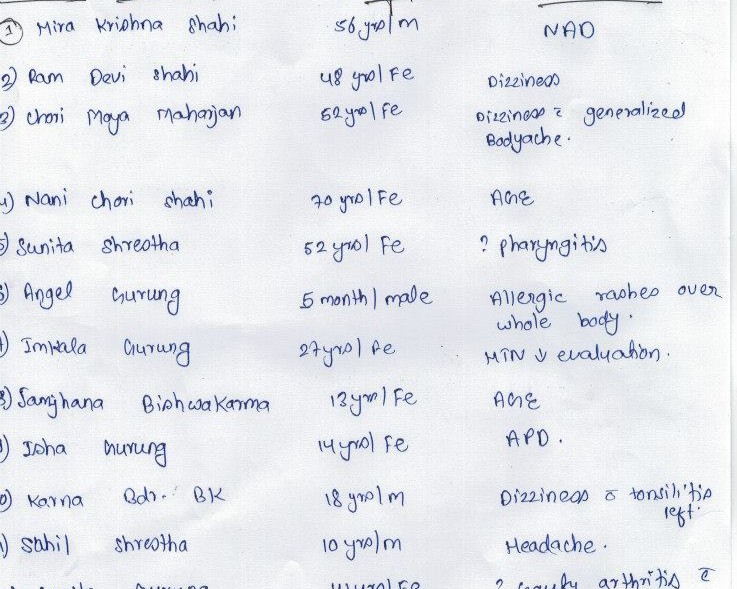 1 Mira Krishna Shahi 56 yrs/m NAD
2) Ram Devi Shahi 48 yrs/Fe Dizziness
3) Chori Maya Maharjan 52 yrs/Fe Dizziness c̄ generalized
Bodyache.
4) Nani Chori Shahi 70 yrs/Fe AGE
5) Sunita Shrestha 52 yrs/Fe ? pharyngitis
6) Angel Gurung 5 month/male Allergic rashes over
whole body.
Imkala Gurung 27 yrs/Fe HTN ↓ evaluation.
8) Bishwakarma 13 yrs/Fe AGE
Isha Gurung 14 yrs/Fe APD.
Karna Bdr. BK 18 yrs/m Dizziness c̄ tonsilitis
left.
Sahil Shrestha 10 yrs/m Headache.
arthritis c̄